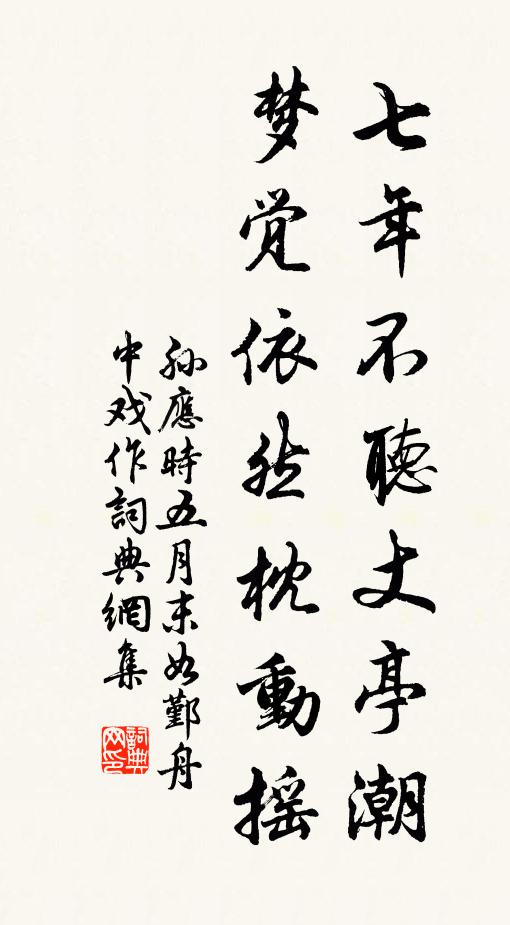 七年不聽丈亭潮
梦觉依然枕動摇
孙應時五月末如鄞舟
中戏作詞典網集
詞典网印